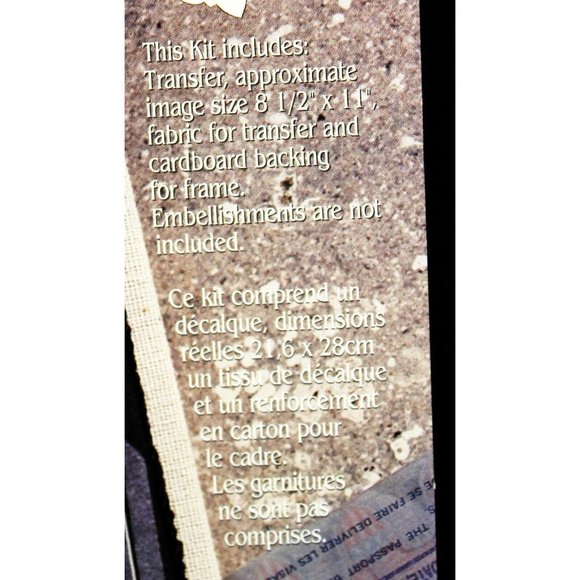 This Kit includes:
Transfer, approximate
image size 8 1/2" x 11",
fabric for transfer and
cardboard backing
for frame.
Embellishments are not
included.
Ce kit comprend un
décalque, dimensions
réelles 21,6 x 28cm
un tissu de décalque
et un renforcement
en carton pour
le cadre.
Les garnitures
ne sont pas
comprises.
DE SE FAIRE DELIVRER LES VISAS
THE PASSPORT